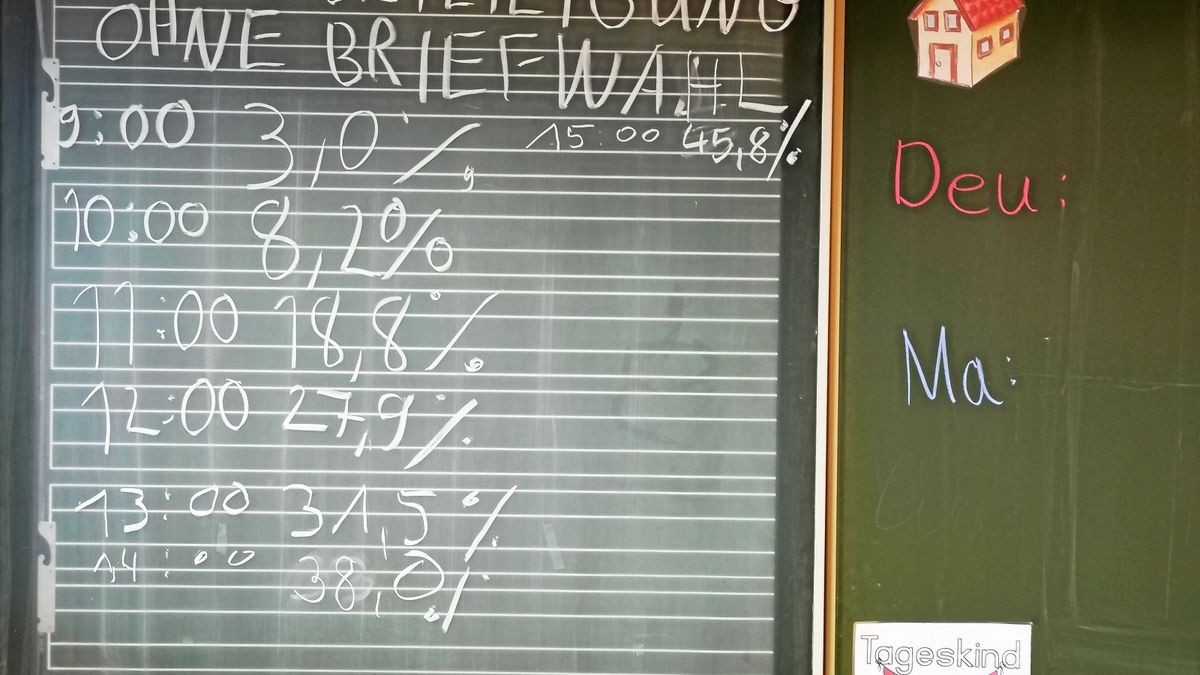 OHNE BRIEFWAHL
9:00 3,0% 15:00 45,8%
10:00 8,2%
11:00 18,8%
12:00 27,9%
13:00 31,5%
14:00 38,0%
Deu:
Ma:
Tageskind